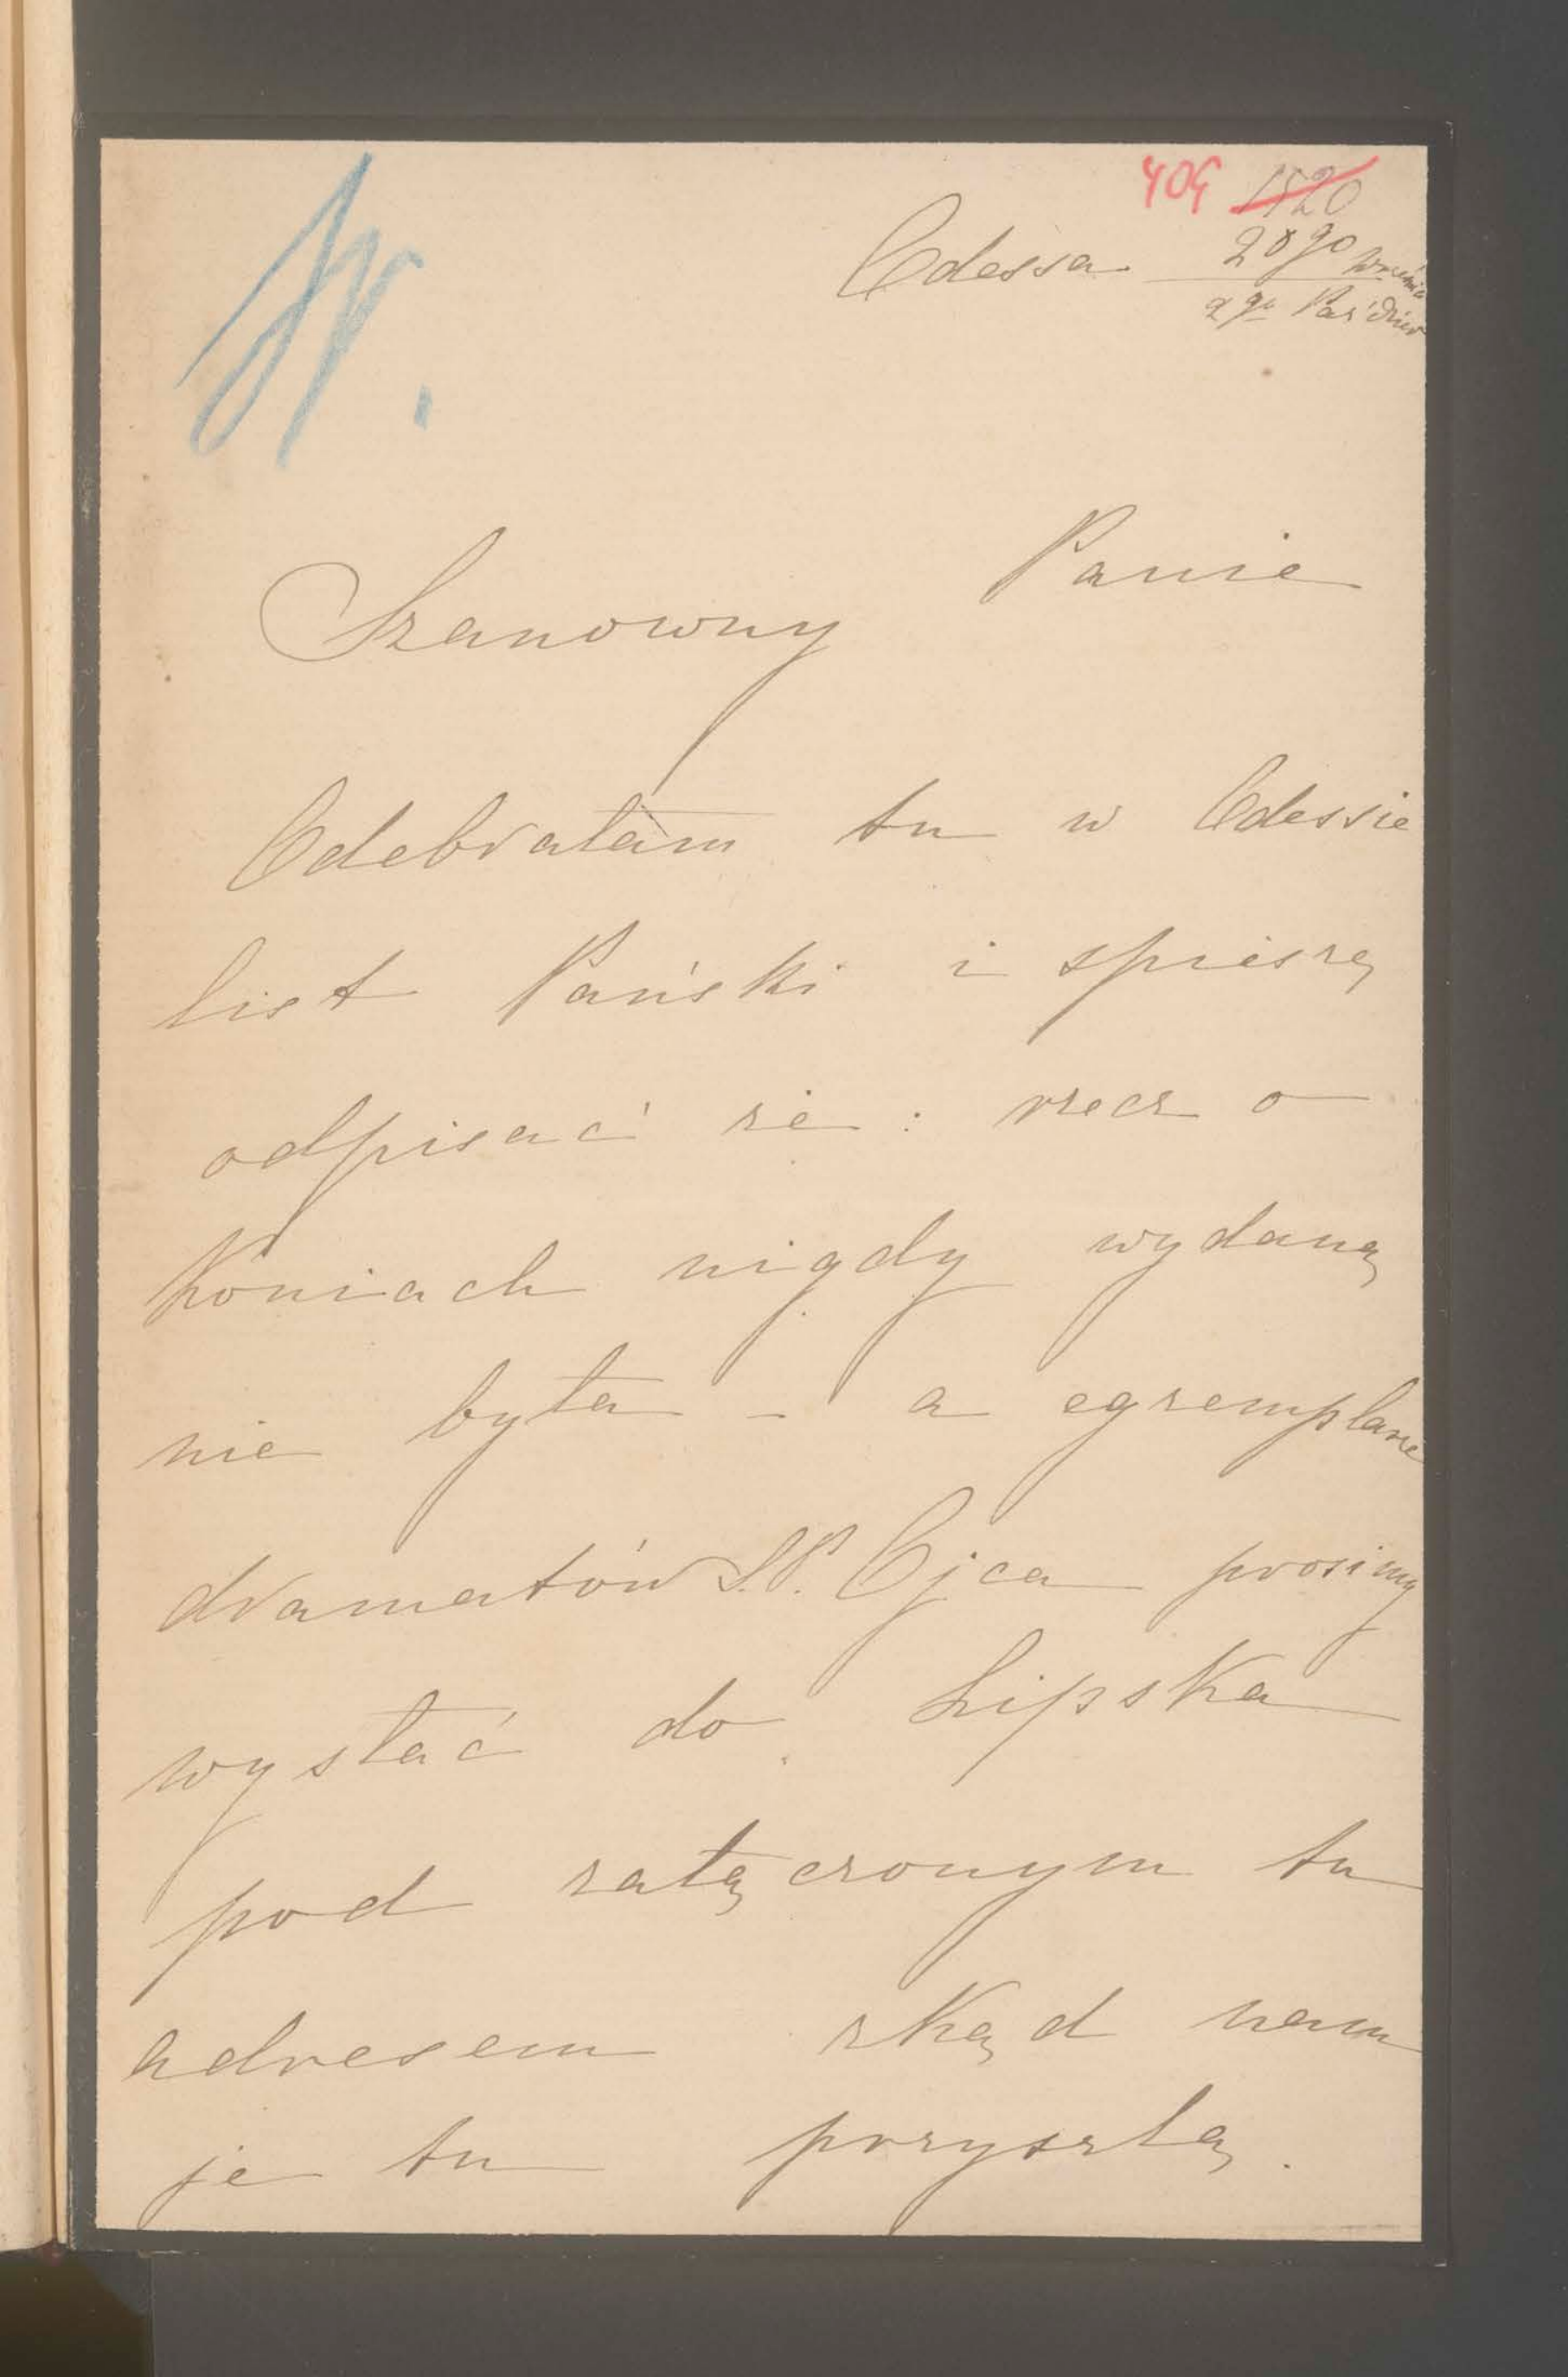 409 1520
Odessa 28go września
2go Paździer
Szanowny Panie
Odebrałam tu w Odessie
list Pański i spieszę
odpisać że : rzecz o
Koniach nigdy wydaną
nie była - a egzemplarze
dramatów S.P. Ojca prosimy
wysłać do Lipska
pod załączonym tu
adresem zkąd nam
je tu przyszlą.